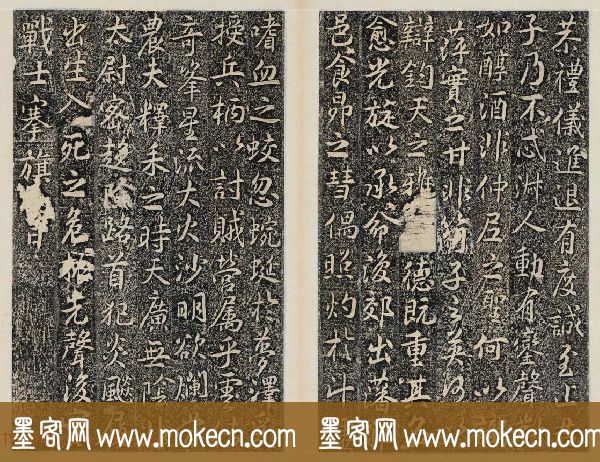 恭禮儀進退有度誠至上
子乃不忒淋人動有鑾聲
如醇酒非仲尼之聖何以
萍實之甘非 子之英
辯鈞天之雅 德既重其
愈光旋以承命浚郊出藩
邑食昴之彗偶照灼於
嗜血之蛟忽蜿蜒於夢澤
授兵柄以討賊營属乎雲
奇峯星流大火沙明欲爛
農夫釋耒之時天廣無陰
太尉密趍隂路首犯炎飇
出生入死之危 先聲後
戰士搴旗
墨客网 www.mokecn.com 墨客网 www.mokecn.com